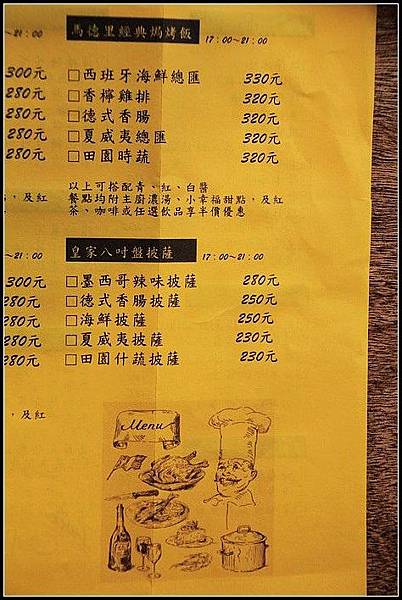 ~21:00
馬德里經典焗烤飯 17:00~21:00
300元 □西班牙海鮮總匯 330元
280元 □香檸雞排 320元
280元 □德式香腸 320元
280元 □夏威夷總匯 320元
280元 □田園時蔬 320元
以上可搭配青、紅、白醬
,及紅 餐點均附主廚濃湯、小幸福甜點,及紅
茶、咖啡或任選飲品享半價優惠
~21:00 皇家八吋盤披薩 17:00~21:00
300元 □墨西哥辣味披薩 280元
280元 □德式香腸披薩 250元
280元 □海鮮披薩 250元
280元 □夏威夷披薩 230元
280元 □田園什蔬披薩 230元
,及紅
Menu